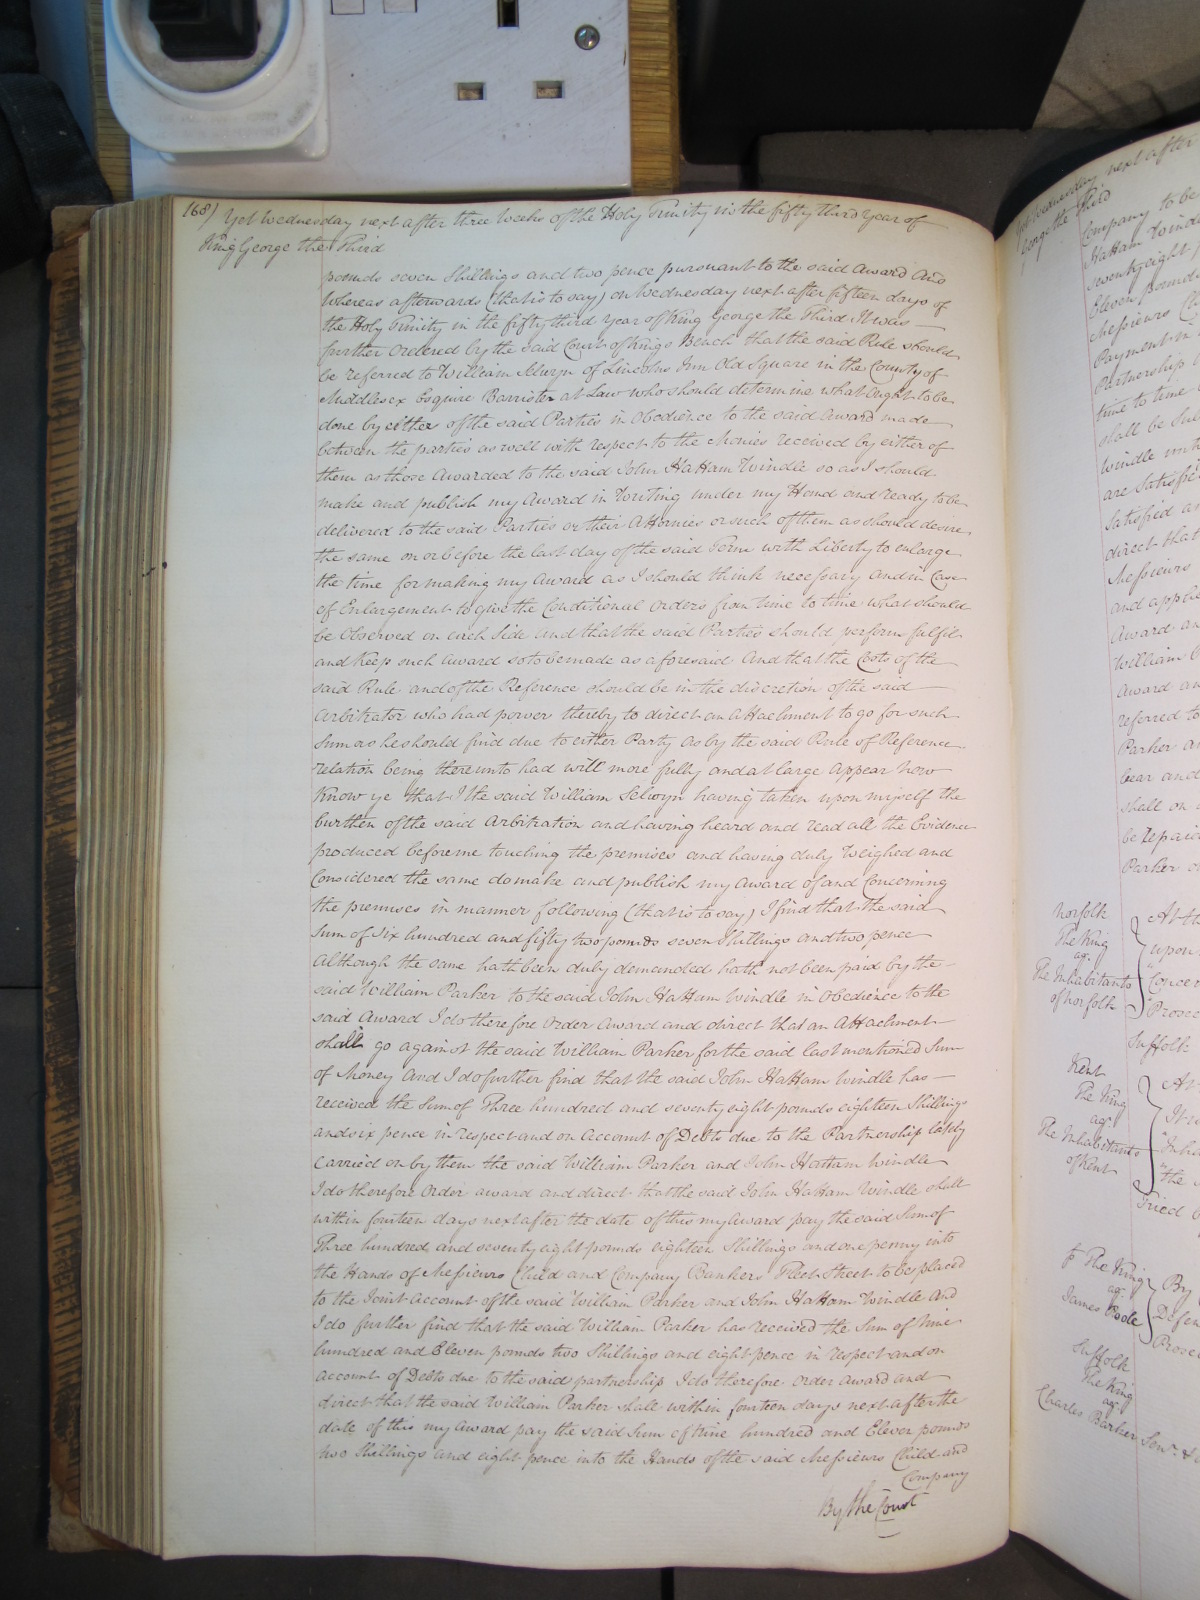 168) Yet Wednesday next after three Weeks of the Holy Trinity in the fifty third Year of
King George the Third
pounds seven Shillings and two pence pursuant to the said Award And
Whereas afterwards (that is to say) on Wednesday next after fifteen days of
the Holy Trinity in the fifty third Year of King George the Third It was
further Ordered by the said Court of Kings Bench that the said Rule should
be referred to William Selwyn of Lincolns Inn Old Square in the County of
Middlesex Esquire Barrister at Law who should determine what ought to be
done by either of the said Parties in Obedience to the said Award made
between the parties as well with respect to the Monies received by either of
them as those Awarded to the said John Hattam Windle so as I should
make and publish my Award in Writing under my Hand and ready to be
delivered to the said Parties or their Attornies or such of them as should desire
the same on or before the last day of the said Term with Liberty to enlarge
the time for making my Award as I should think necessary and in Case
of Enlargement to give the Conditional Orders from time to time what should
be Observed on each Side and that the said Parties should perform fulfil
and Keep such Award so to be made as aforesaid And that the Costs of the
said Rule and of the Reference should be in the discretion of the said
Arbitrator who had power thereby to direct an Attachment to go for such
Sum as he should find due to either Party As by the said Rule of Reference
relation being thereunto had will more fully and at large Appear Now
Know ye that I the said William Selwyn having taken upon myself the
burthen of the said Arbitration and having heard and read all the Evidence
produced before me touching the premises and having duly Weighed and
Considered the same do make and publish my Award of and Concerning
the premises in manner following (that is to say) I find that the said
Sum of Six hundred and fifty two pounds seven shillings and two pence
Although the same hath been duly demanded hath not been paid by the
said William Parker to the said John Hattam Windle in Obedience to the
said Award I do therefore Order Award and direct that an Attachment
shall go against the said William Parker for the said last mentioned Sum
of Money And I do further find that the said John Hattam Windle has
received the Sum of Three hundred and seventy eight pounds eighteen Shillings
and six pence in respect and on Account of Debts due to the Partnership lately
Carried on by them the said William Parker and John Hattam Windle
I do therefore Order award and direct that the said John Hattam Windle shall
within fourteen days next after the date of this my Award pay the said Sum of
Three hundred and seventy eight pounds eighteen Shillings and one penny into
the Hands of Messieurs Child and Company Bankers Fleet Street to be placed
to the Joint Account of the said William Parker and John Hattam Windle And
I do further find that the said William Parker has received the Sum of Nine
hundred and Eleven pounds two Shillings and eight pence in respect and on
account of Debts due to the said partnership I do therefore Order award and
direct that the said William Parker shall within fourteen days next after the
date of this my Award pay the said Sum of Nine hundred and Eleven pounds
two Shillings and eight pence into the Hands of the said Messieurs Child and
Company
By the Court
Yet Wednesday next after
George the Third
Company to be
Hattam Windle
seventy eight
Eleven pounds
Messieurs
Payment in
Partnership
time to time
shall be
Windle
are Satisfied
Satisfied
direct that
Messieurs
and
Award and
William
Award and
referred to
Parker
bear and
shall on
be repaid
Parker
Norfolk
The King
agt
The Inhabitants
of Norfolk
At the
upon
Suffolk
Kent
The King
agt
The Inhabitants
of Kent
At
It is
the
Tried
The King
agt
James Poole
By
Suffolk
The King
agt
Charles Barker Senr